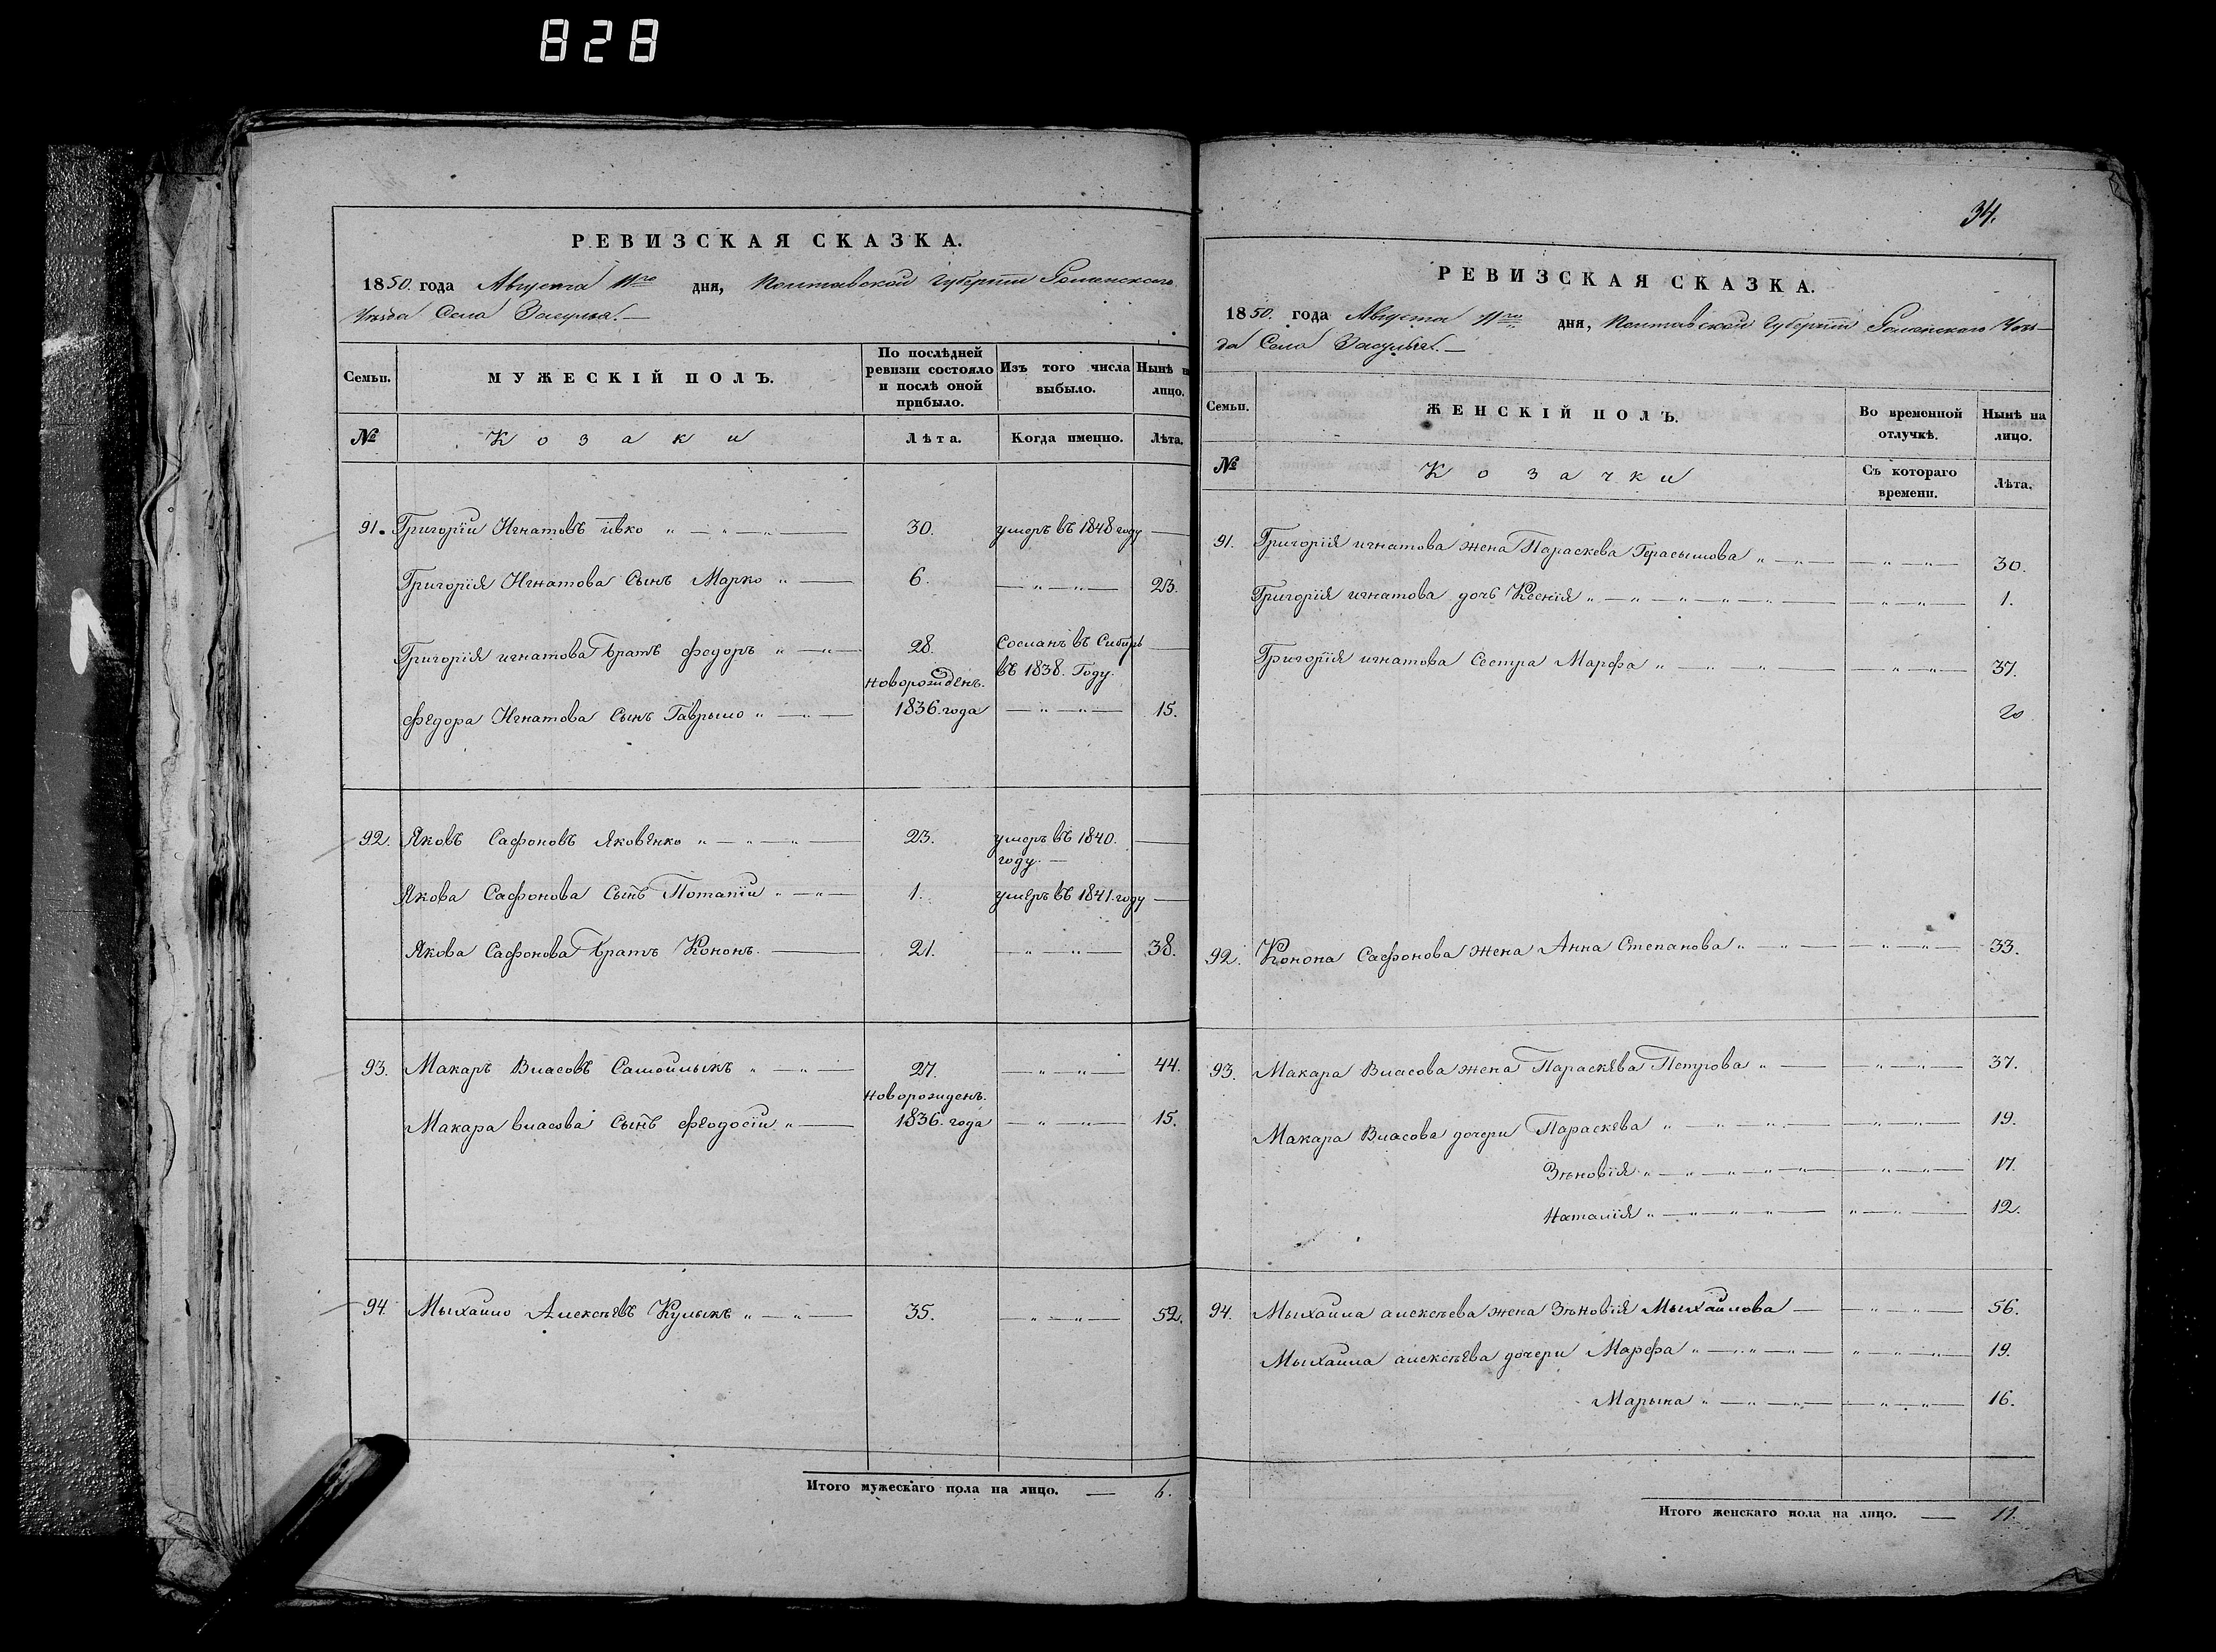 828
РЕВИЗСКАЯ СКАЗКА.
1850. года Августа 11го дня, Полтавской Губернии Роменского
Уѣзда Села Засулья.—
Семьи. МУЖЕСКІЙ ПОЛЪ. По послѣдней ревизіи состояло и послѣ оной прибыло. Изъ того числа выбыло. Нынѣ на лицо.
№ Козаки Лѣта. Когда именно. Лѣта.
91. Григорій Игнатовъ Ивко „ — „ — „ — 30. умеръ въ 1848 году —
Григорія Игнатова Сынъ Марко „ — 6. — „ — „ — 23.
Григорія игнатова братъ Федоръ „ — „ — 28. Сосланъ въ Сибирь —
въ 1838. Году.
новорожден.
Федора Игнатова Сынъ Гаврыло „ — „ — 1836. года — „ — „ — 15.
92. Яковъ Сафоновъ Яковенко „ — „ — „ — 23. умеръ въ 1840. —
году. —
Якова Сафонова Сынъ Потапій „ — „ — 1. умеръ въ 1841. году —
Якова Сафонова братъ Кононъ. — 21. — „ — „ — 38.
93. Макаръ Власовъ Самойлыкъ „ — „ — 27. — „ — „ — 44.
новорожден.
Макара власова Сынъ Феодосій „ — 1836. года — „ — „ — 15.
94. Мыхайло Алексѣевъ Кулыкъ „ — „ — 35. — „ — „ — 52.
Итого мужескаго пола на лицо. — 6.
34.
РЕВИЗСКАЯ СКАЗКА.
1850. года Августа 11го дня, Полтавской Губерніи Роменского Уѣз—
да Села Засулья.—
Семьи. ЖЕНСКІЙ ПОЛЪ. Во временной отлучкѣ. Нынѣ на лицо.
№ Козачки Съ котораго времени. Лѣта.
91. Григорія игнатова жена Параскева Герасымова „ — „ — — „ — „ — 30.
Григорія игнатова дочь Ксенія „ — „ — „ — „ — „ — — „ — „ — 1.
Григорія игнатова Сестра Марфа „ — „ — „ — — „ — „ — 37.
20
92. Конона Сафонова жена Анна Степанова „ — „ — — „ — „ — 33.
93. Макара Власова жена Параскева Петрова „ — — „ — „ — 37.
Макара Власова дочери Параскева „ — „ — „ — — „ — „ — 19.
Зѣновія „ — „ — „ — „ — „ — — „ — „ — 17.
Наталія „ — „ — „ — „ — „ — „ — 12.
94. Мыхаила алексѣева жена Зѣновія Мыхайлова — — „ — „ — 56.
Мыхаила алексѣева дочери Марфа „ — „ — „ — „ — „ — „ — 19.
Марына „ — „ — „ — — „ — „ — 16.
Итого женскаго пола на лицо. — 11.